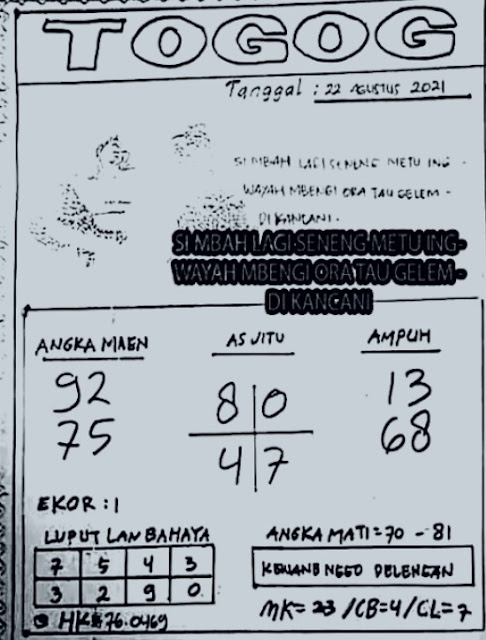 TOGOG
Tanggal : 22 AGUSTUS 2021
SI MBAH LAGI SENENG METU ING -
WAYAH MBENGI ORA TAU GELEM -
DI KANCANI .
SI MBAH LAGI SENENG METU ING-
WAYAH MBENGI ORA TAU GELEM -
DI KANCANI
ANGKA MAEN
AS JITU
AMPUH
92
8 0
13
75
4 7
68
EKOR : 1
LUPUT LAN BAHAYA
7 5 4 3
3 2 9 0
ANGKA MATI = 70 - 81
MK= 23 /CB=4/CL= 7
HK= 76.0469